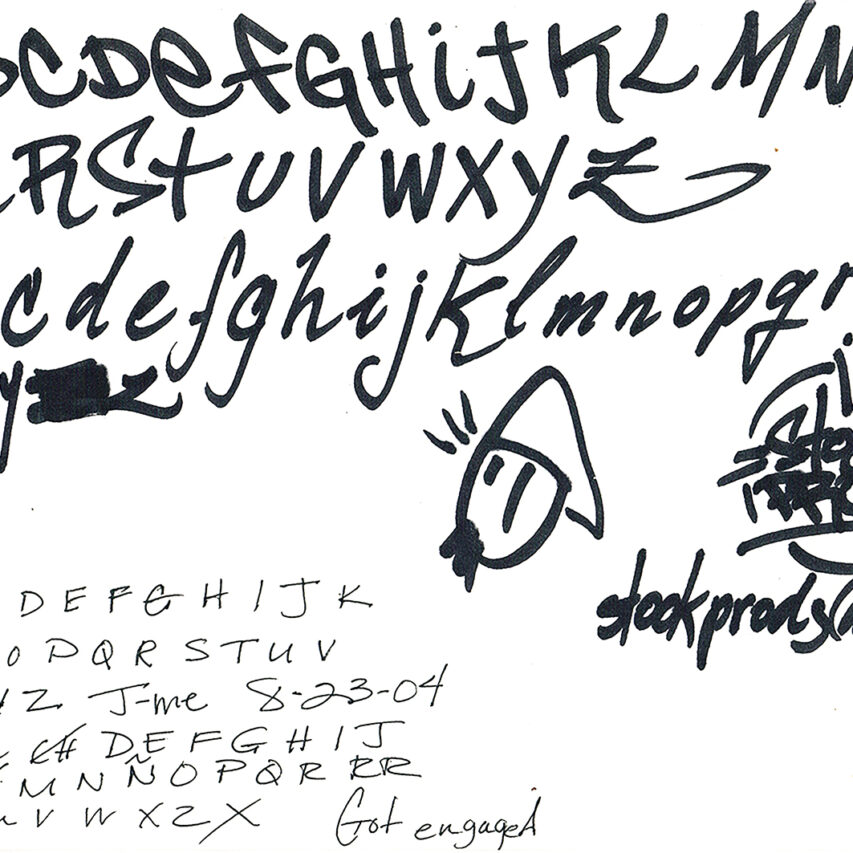 CDefGHiJKLMN
RStUVWXYZ
cdefghijklmnopqr
y z
stockprods@
D E F G H I J K
O P Q R S T U V
Z J-me 8-23-04
CH D E F G H I J
M N Ñ O P Q R RR
V W X Z X Got engaged